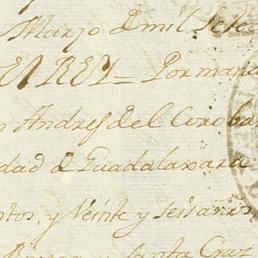 Marzo D mil Sete
EL REY = Por man
Andres del Coroba
dad de Guadalaxara
tos, y Veinte y seis años
y Santa Cruz